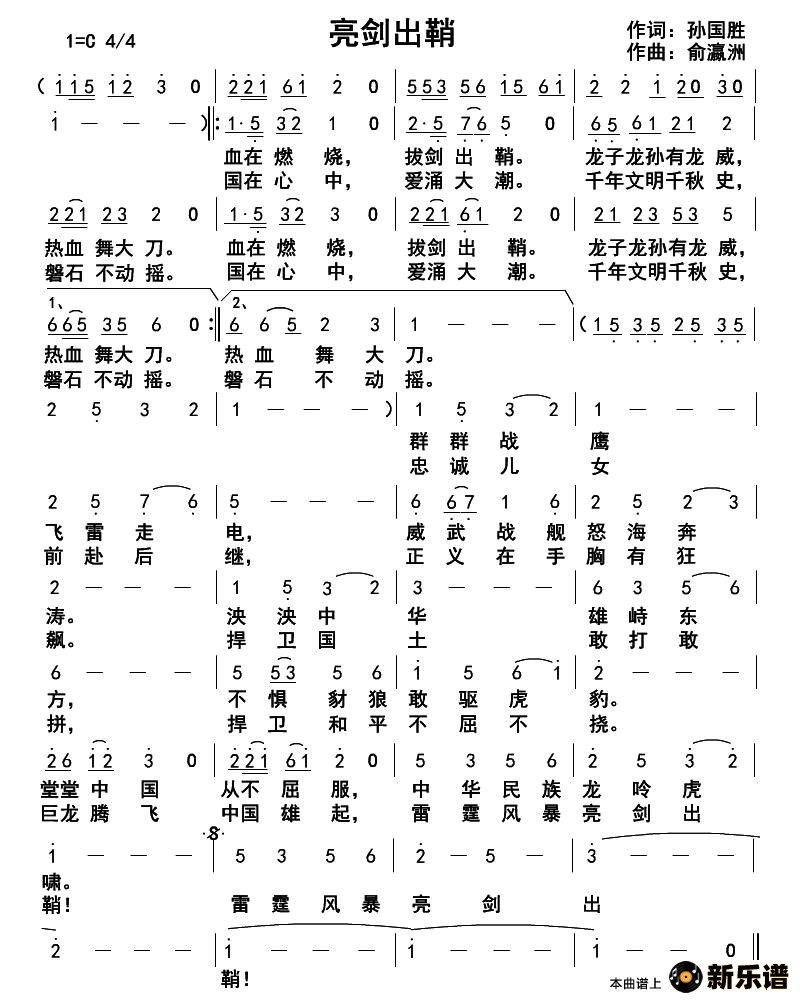 亮剑出鞘
1=C 4/4
作词：孙国胜
作曲：俞瀛洲
( 1 1 5 1 2 3 0 | 2 2 1 6 1 2 0 | 5 5 3 5 6 1 5 6 1 | 2 2 1 2 0 3 0 |
1 — — ) ‖: 1 · 5 3 2 1 0 | 2 · 5 7 6 5 0 | 6 5 6 1 2 1 2 |
血在 燃 烧， 拔剑 出 鞘。 龙子龙孙有龙 威，
国在 心 中， 爱涌 大 潮。 千年文明千秋 史，
2 2 1 2 3 2 0 | 1 · 5 3 2 3 0 | 2 2 1 6 1 2 0 | 2 1 2 3 5 3 5 |
热血 舞大 刀。 血在 燃 烧， 拔剑 出 鞘。 龙子龙孙有龙 威，
磐石 不动 摇。 国在 心 中， 爱涌 大 潮。 千年文明千秋 史，
1、 2、
6 6 5 3 5 6 0 :‖ 6 6 5 2 3 | 1 — — — | ( 1 5 3 5 2 5 3 5 |
热血 舞大 刀。 热 血 舞 大 刀。
磐石 不动 摇。 磐 石 不 动 摇。
2 5 3 2 | 1 — — ) | 1 5 3 2 | 1 — — — |
群 群 战 鹰
忠 诚 儿 女
2 5 7 6 | 5 — — — | 6 6 7 1 6 | 2 5 2 3 |
飞 雷 走 电， 威 武 战 舰 怒 海 奔
前 赴 后 继， 正 义 在 手 胸 有 狂
2 — — — | 1 5 3 2 | 3 — — — | 6 3 5 6 |
涛。 泱 泱 中 华 雄 峙 东
飙。 捍 卫 国 土 敢 打 敢
6 — — — | 5 5 3 5 6 | 1 5 6 1 | 2 — — — |
方， 不 惧 豺 狼 敢 驱 虎 豹。
拼， 捍 卫 和 平 不 屈 不 挠。
2 6 1 2 3 0 | 2 2 1 6 1 2 0 | 5 3 5 6 | 2 5 3 2 |
堂堂 中 国 从不 屈 服， 中 华 民 族 龙 吟 虎
巨龙 腾 飞 中国 雄 起， 雷 霆 风 暴 亮 剑 出
1 — — — | 5 3 5 6 | 2 — 5 — | 3 — — — |
啸。
鞘！ 雷 霆 风 暴 亮 剑 出
2 — — — | 1 — — — | 1 — — — | 1 — — 0 ‖
鞘！
本曲谱上 新乐谱